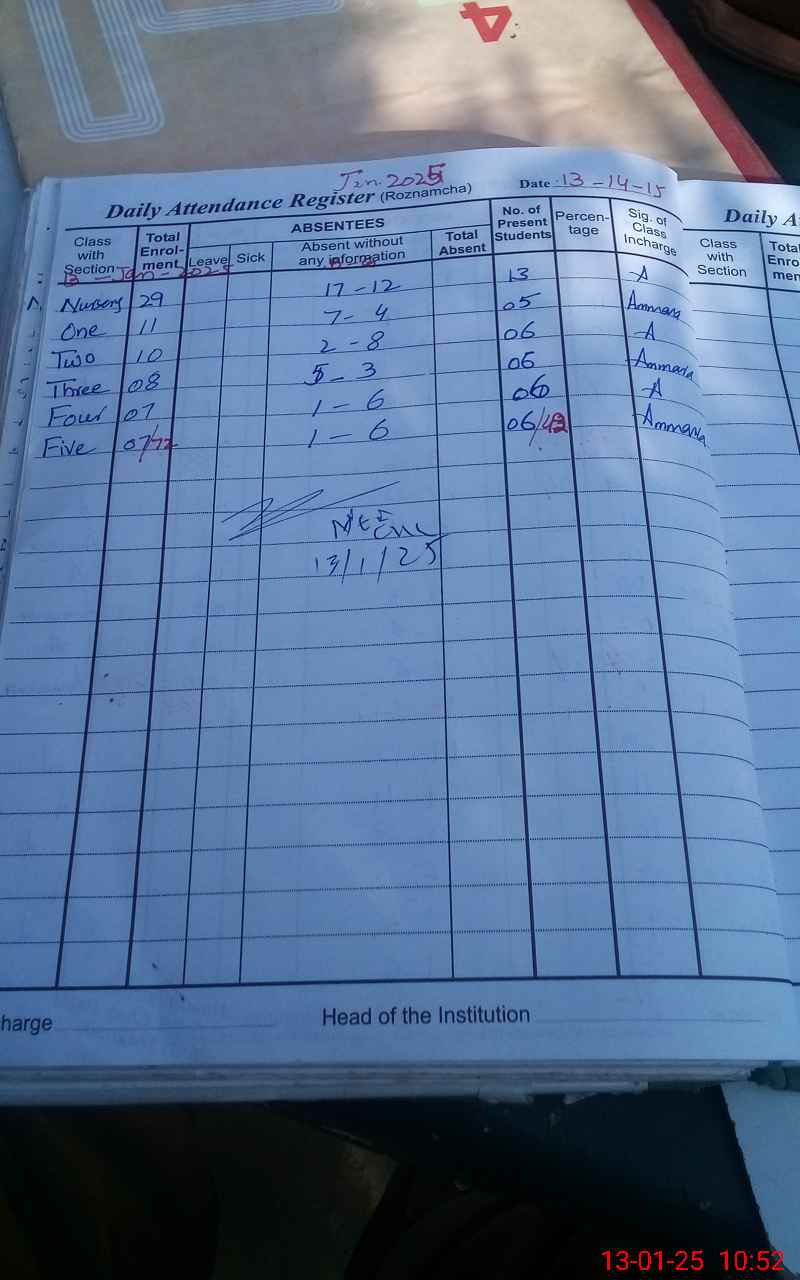 4
Jan. 2025
Daily Attendance Register (Roznamcha) Date: 13-14-15
Class with Section Total Enrol-ment ABSENTEES Leave Sick Absent without any information Total Absent No. of Present Students Percen-tage Sig. of Class Incharge
13 - Jan - 2025
Nursery 29 17-12 13 A
One 11 7-4 05 Ammara
Two 10 2-8 06 A
Three 08 5-3 06 Ammara
Four 07 1-6 06 A
Five 07/72 1-6 06/42 Ammara
13/1/25
harge Head of the Institution
Daily A
Class with Section Total Enro men
13-01-25 10:52